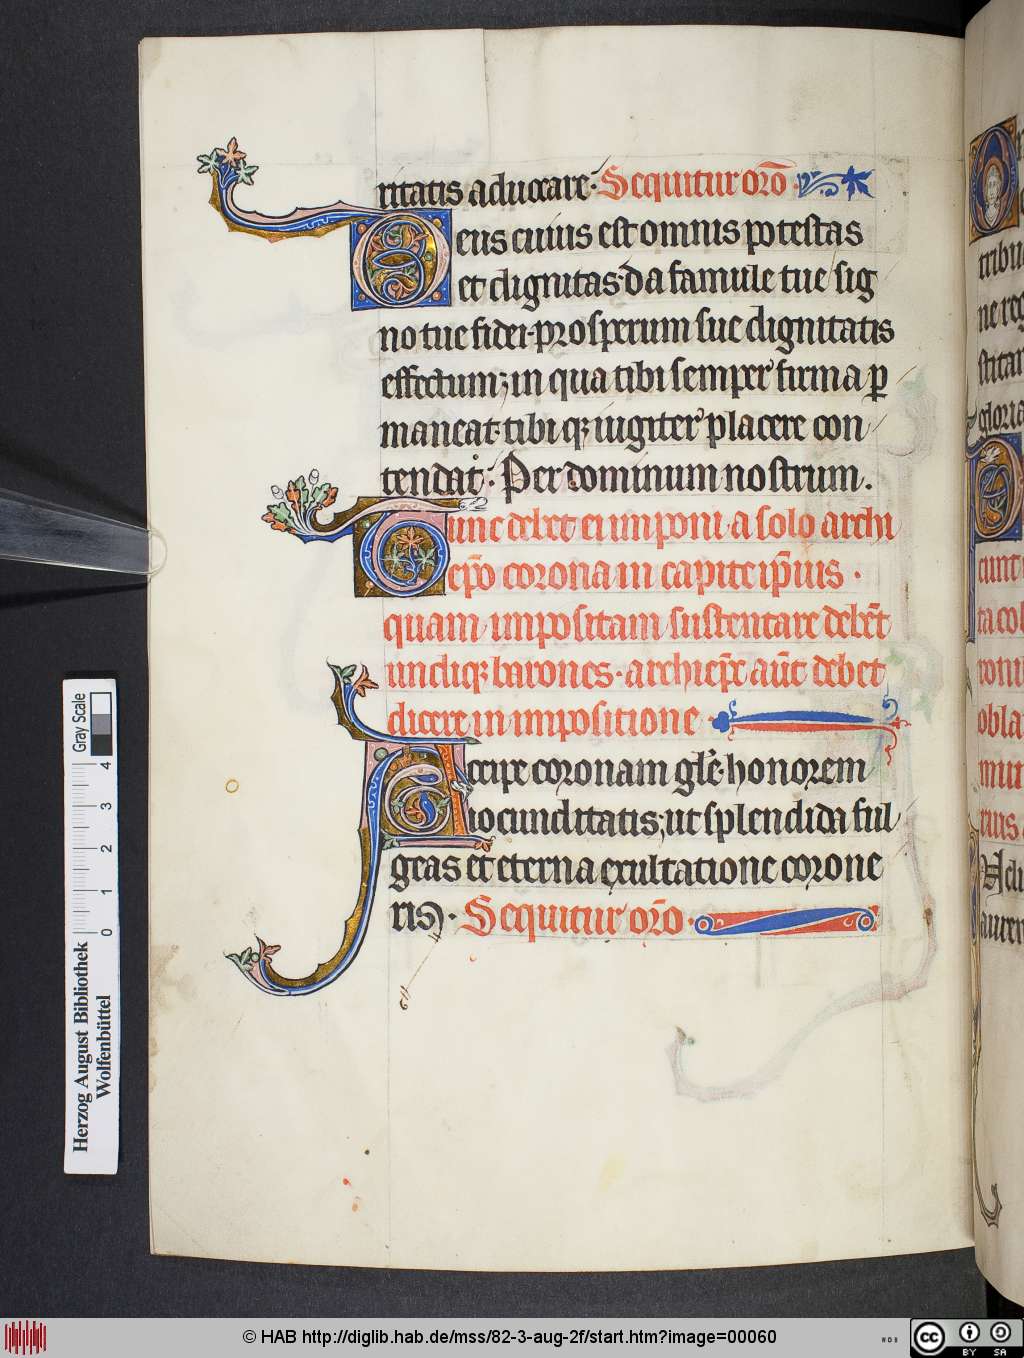 ritatis aduocare. Sequitur orõ.
Deus cuius est omnis potestas
et dignitas. da famule tue sig
no tue fidei. prosperum sue dignitatis
effectum; in qua tibi semper firma ꝑ
maneat. tibi qꝫ iugiter placere con
tendat. Per dominum nostrum.
Tunc debet ei imponi. a solo archi
ep̃o corona in capite ip̃ius.
quam impositam sustentare debẽt
undiqꝫ barones. archiep̃c aũt debet
dicere in impositione
Accipe coronam glẽ. honorem
iocunditatis; ut splendida ful
geas et eterna exultatione corone
ris. Sequitur orõ.
tribu
ne reg
stitar
gloria
cunt
ta col
rotul
obla
mun
rius
Veli
aurer
Gray Scale
0 1 2 3 4
Herzog August Bibliothek
Wolfenbüttel
© HAB http://diglib.hab.de/mss/82-3-aug-2f/start.htm?image=00060
WDB
cc BY SA